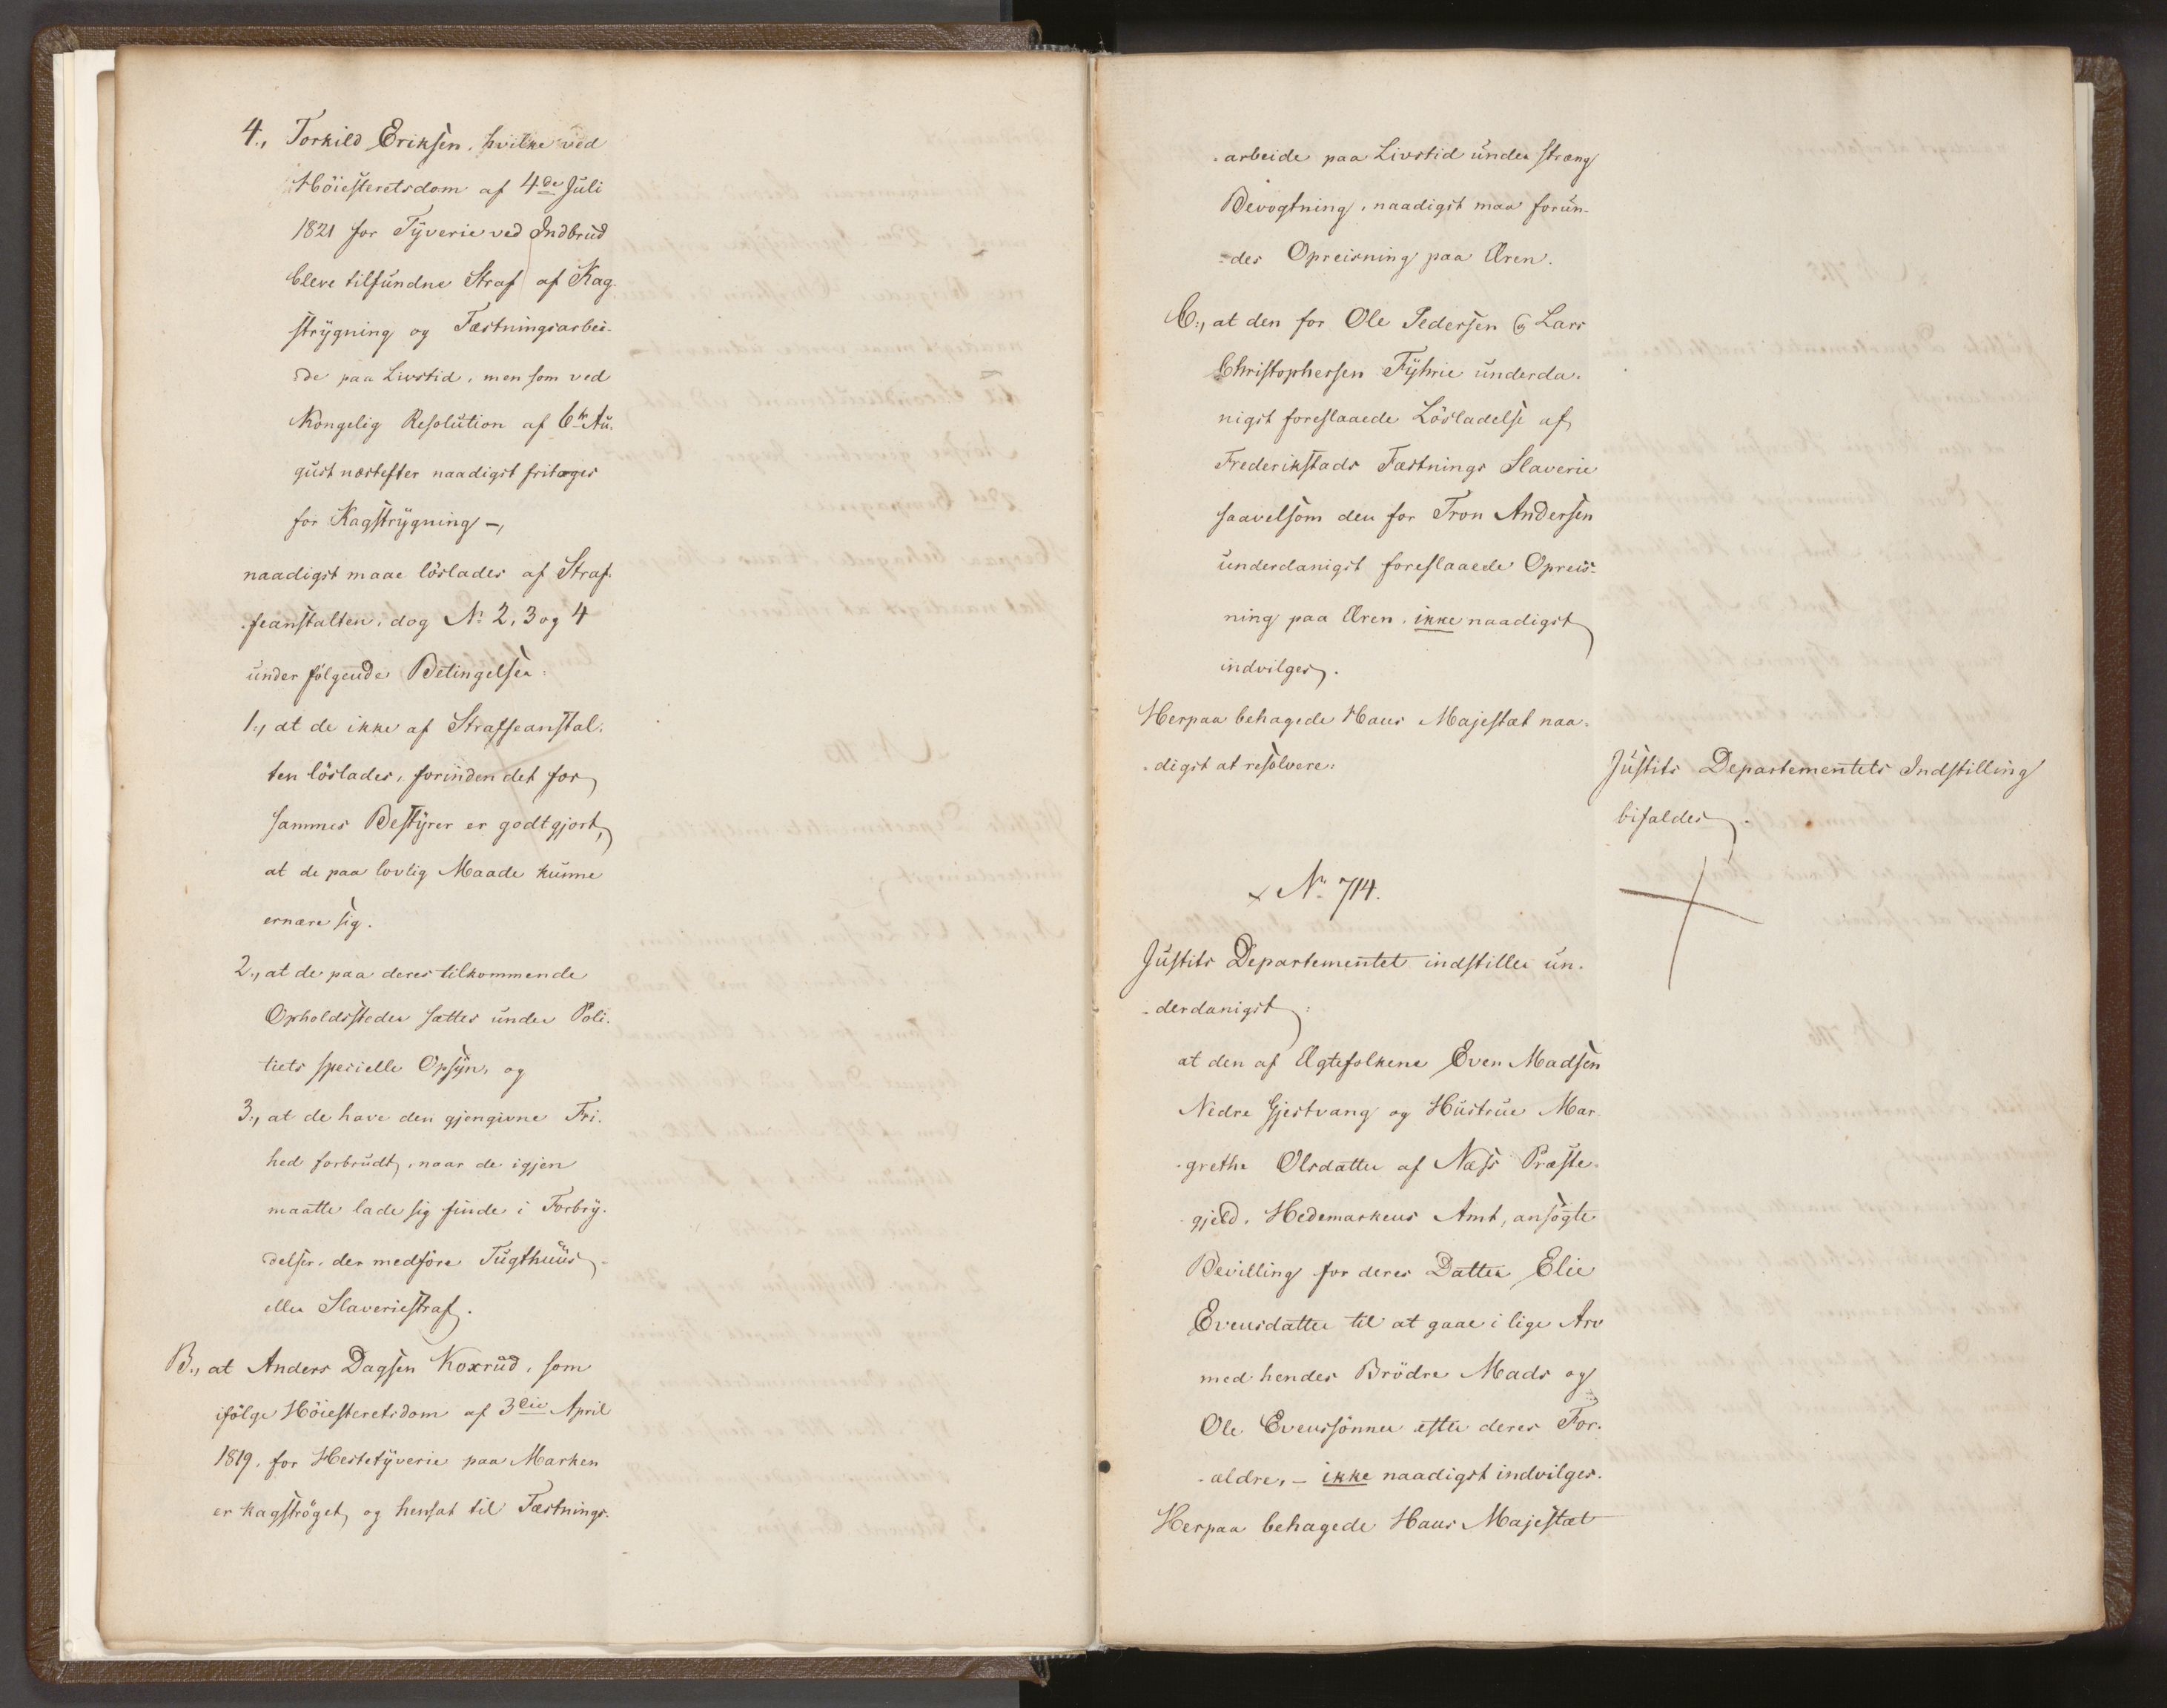 4., Torkild Eriksen, hvilke ved
Höiesteretsdom af 4de Juli
1821 for Tyverie ved Indbrud
bleve tilfundne Straf af Kag-
strygning og Fæstningsarbei-
de paa Livstid, men som ved
Kongelig Resolution af 6te Au-
gust næstefter naadigst fritoges
for Kagstrygning –,
naadigst maae löslades af Straf-
feanstalten, dog No 2, 3 og 4
under fölgende Betingelser:
1., at de ikke af Straffeanstal-
ten löslades, forinden det for
sammes Bestyrer er godtgjort,
at de paa lovlig Maade kunne
ernære sig.
2., at de paa deres tilkommende
Opholdssteder sættes under Poli-
tiets specielle Opsyn, og
3., at de have den gjengivne Fri-
hed forbrudt, naar de igjen
maatte lade sig finde i Forbry-
delser, der medföre Tugthuus-
eller Slaveriestraf.
B., at Anders Dagsen Koxrud, som
ifölge Höiesteretsdom af 3die April
1819, for Hestetyverie paa Marken
er kagströget, og hensat til Fæstnings-
arbeide paa Livstid under streng
Bevogtning, naadigst maa forun-
des Opreisning paa Æren.
C., at den for Ole Pedersen og Lars
Christophersen Fyhrie underda-
nigst foreslaaede Lösladelse af
Frederikstads Fæstnings Slaverie
saavelsom den for Tron Andersen
underdanigst foreslaaede Opreis-
ning paa Æren, ikke naadigst
indvilges.
Herpaa behagede Hans Majestæt naa-
digst at resolvere:
Justits Departementets Indstilling
bifaldes.
No 714.
Justits Departementet indstiller un-
derdanigst:
at den af Ægtefolkene Even Madsen
Nedre Gjestvang og Hustrue Mar-
grethe Olsdatter af Næss Præste-
gjeld, Hedemarkens Amt, ansögte
Bevilling for deres Datter Elie
Evensdatter til at gaae i lige Arv
med hendes Brödre Mads og
Ole Evenssönner efter deres For-
ældre, – ikke naadigst indvilges.
Herpaa behagede Hans Majestæt